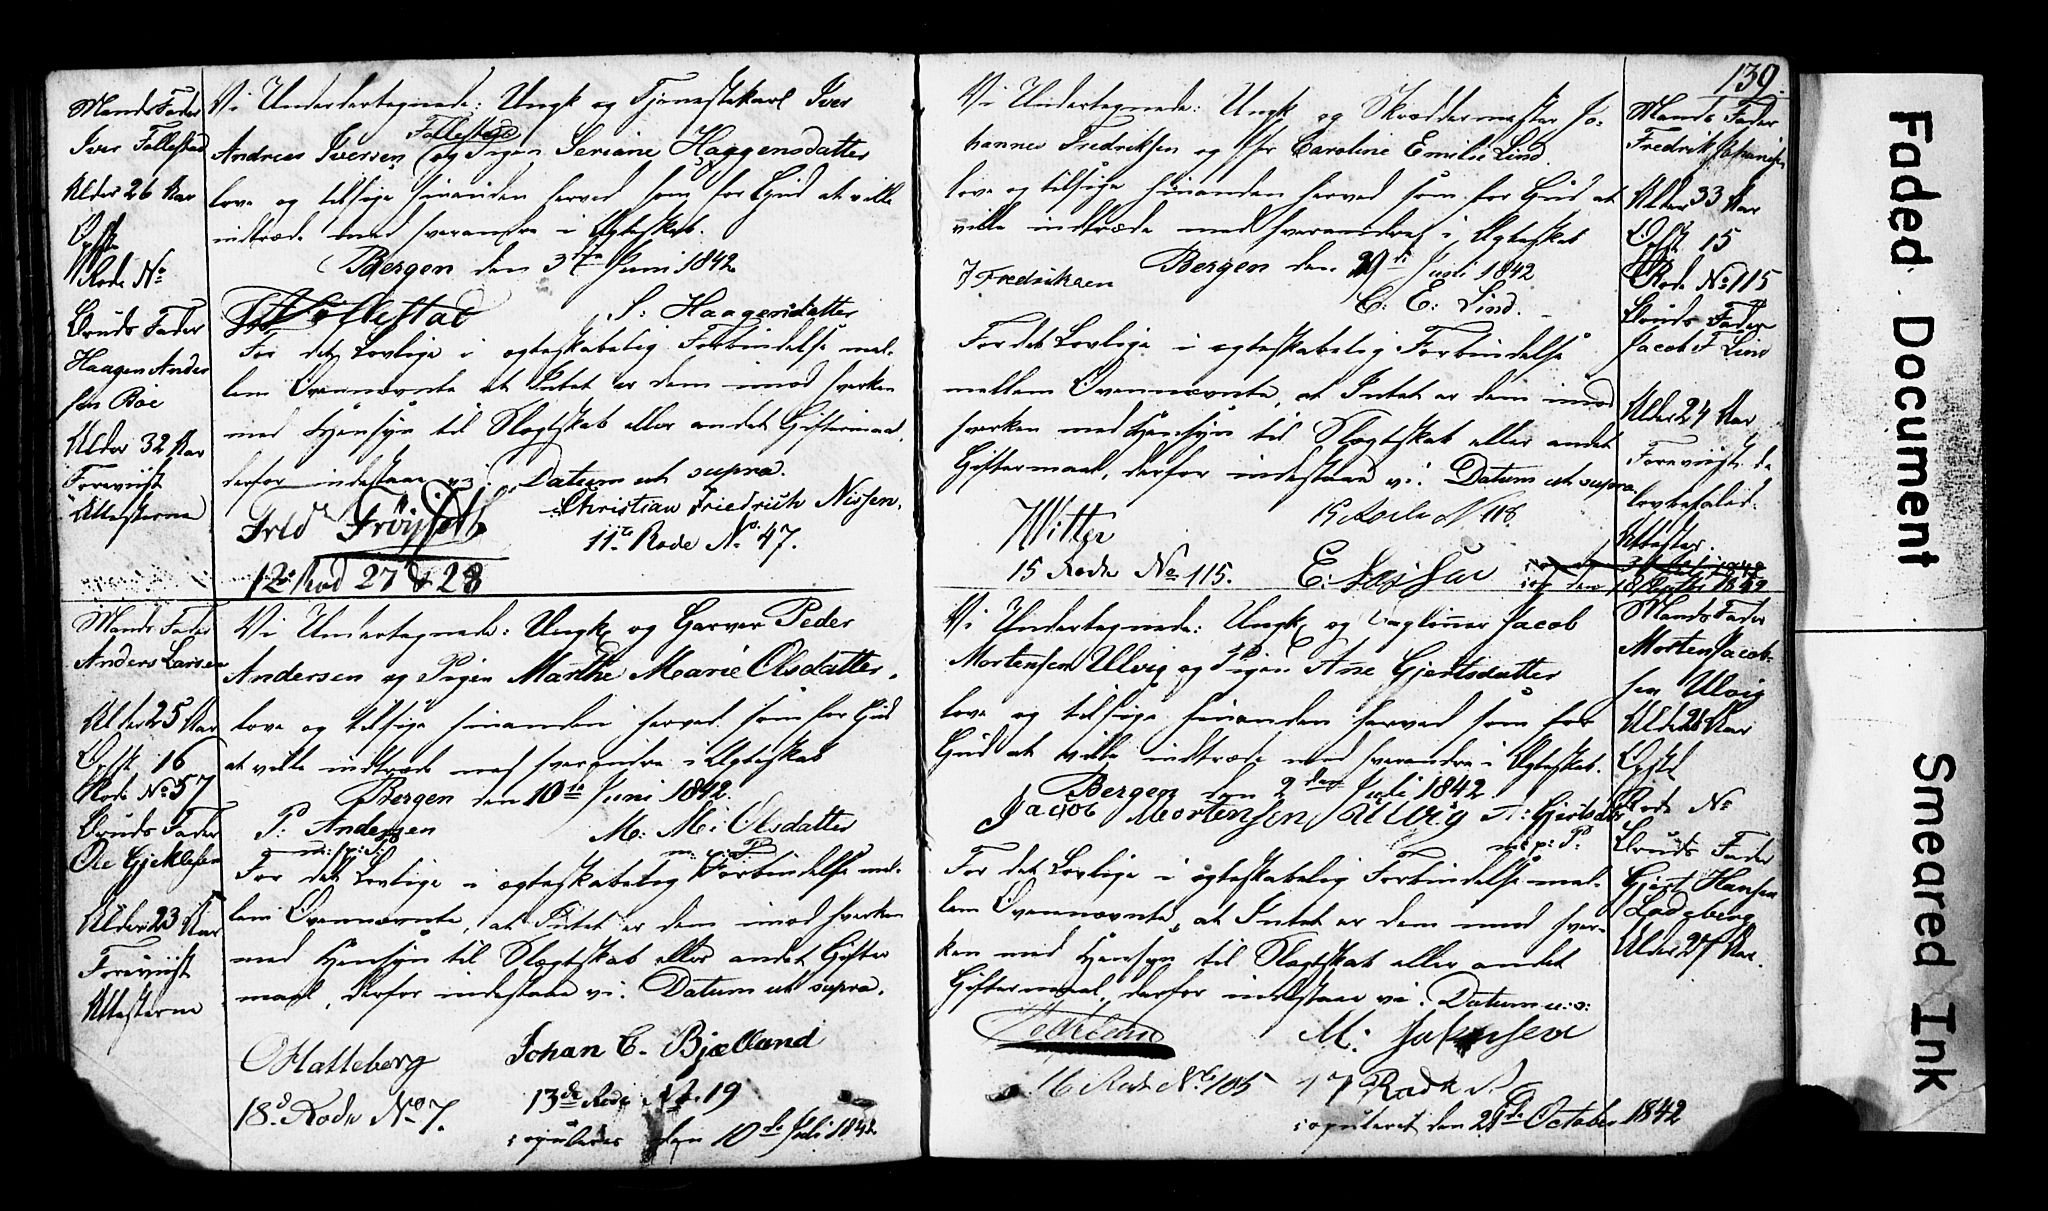 Mands Fader
Iver Follestad
Alder 26 Aar
Opsk
Rode No
Bruds Fader
Haagen Ander
sen Böe
Alder 32 Aar
Foreviist
Attesterne
Vi Underdertegnede: Ungk og Tjenestekarl Iver
Follestad
Andreas Iversen og Pigen Seriane Haggensdatter
love og tilsige hinanden herved som for Gud at ville
indtræde med hverandre i Ægteskab.
Bergen den 3die Juni 1842
Follestad S: Haagensdatter
For det Lovlige i ægteskabelig Forbindelse mel-
lem Ovennævnte at Intet er dem imod hverken
med Hensyn til Slægtskab eller andet Giftermaal,
derfor indestaae vi. Datum ut supra.
Christian Friedrich Nissen.
11te Rode No 47.
12te Rod 27 & 28
Mands Fader
Anders Larsen
Alder 25 Aar
Opsk 16
Rode No 57
Bruds Fader
Ole Gjeklesen
Alder 23 Aar
Foreviist
Attesterne
Vi Undertegnede: Ungk og Garver Peder
Andersen og Pigen Marthe Marie Olsdatter.
love og tilsige hinanden herved som for Gud
at ville indtræde med hverandre i Ægteskab
Bergen den 10de Juni 1842
P: Andersen M: M: Olsdatter
m: p: P: m: p: P:
For det Lovlige i ægteskabelig Forbindelse mel-
lem Ovennævnte, at Intet er dem imod hverken
med Hensyn til Slægtskab eller andet Gifter
maal, derfor indestaae vi. Datum ut supra.
OHalleberg Johan C. Bjælland
18d. Rode No 7. 13de Rode No. 19
copuleres den 10de Juli 1842
139.
Vi Undertegnede: Ungk og Skræddermester Jo-
hannes Fredriksen og Jfr Caroline Emilie Lind.
love og tilsige hinanden herved som for Gud at
ville indtræde med hverandre i Ægteskab
Bergen den Juli 1842
J Fredriksen
C: E: Lind.
For det Lovlige i ægteskabelig Forbindelse
mellem Ovennævnte, at Intet er dem imod
hverken med Hensyn til Slægtskab eller andet
Giftermaal, derfor indestaae vi. Datum ut supra.
Witter 15 Rode N 118
15 Rode No 115.
Mands Fader
Fredrik Johannesen
Alder 33 Aar
Opsk 15
Rode No 115
Bruds Fader
Jacob F Lind
Alder 24 Aar
Foreviist de
lovbefalede
Attester
Vi Undertegnede: Ungk og Jacob
Mortensen Ulvig og Pigen Ane Gjertsdatter
love og tilsige hinanden herved som for
Gud at ville indtræde med hverandre i Ægteskab.
Bergen den 2den Juli 1842.
Jacob Mortensen Ulvig A: Gjertsdatter
m: p: P:
For det Lovlige i ægteskabelig Forbindelse mel-
lem Ovennævnte, at Intet er dem imod hver-
ken med Hensyn til Slægtskab eller andet
Giftermaal, derfor indestaae vi. Datum u: s:
M:
16 Rode No 105 17 Rode N
copuleret den October 1842
Mands Fader
Morten Jacob-
sen Ulvig
Alder 28 Aar
Opsk
Rode No
Bruds Fader
Gjert Hansen
Ladeberg
Alder 27 Aar.
Faded Document
Smeared Ink